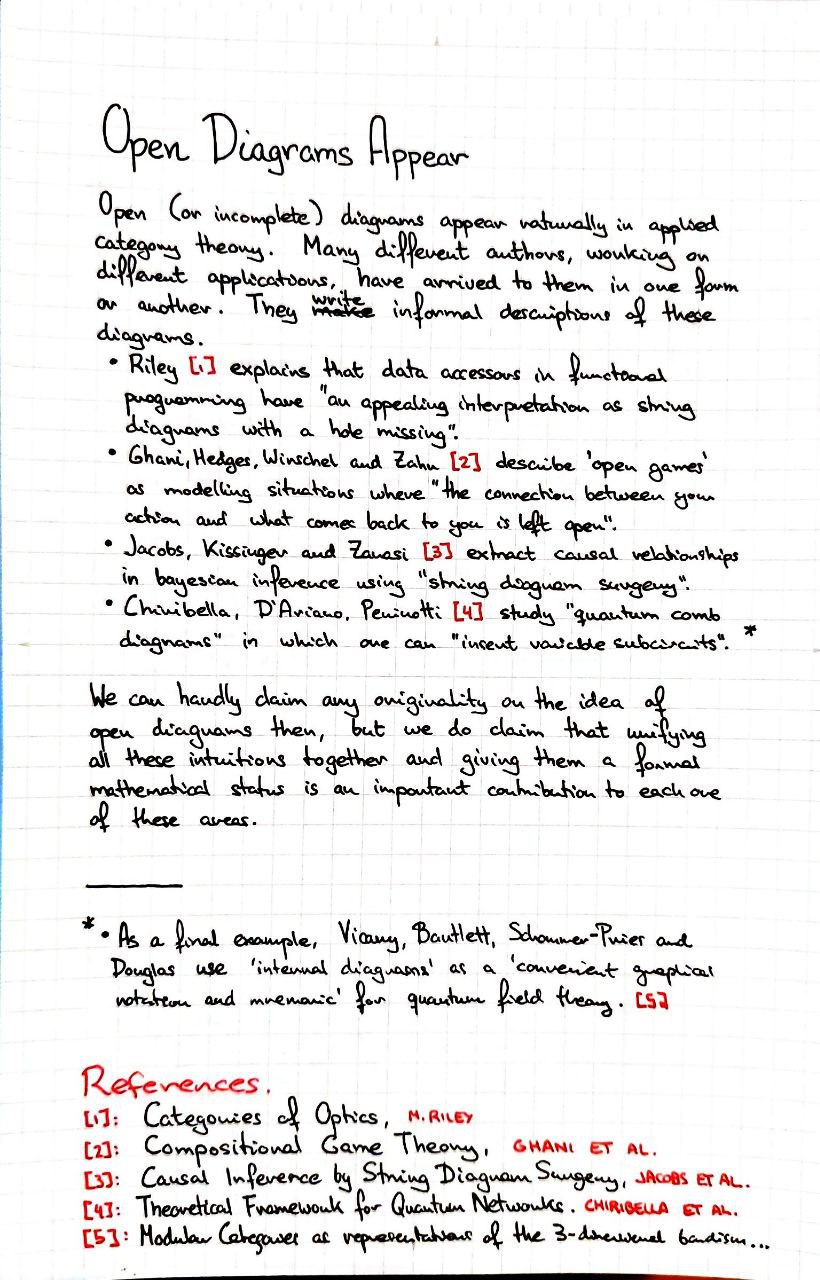 Open Diagrams Appear
Open (or incomplete) diagrams appear naturally in applied
category theory. Many different authors, working on
different applications, have arrived to them in one form
or another. They write informal descriptions of these
diagrams.
• Riley [1] explains that data accessors in functional
programming have "an appealing interpretation as string
diagrams with a hole missing".
• Ghani, Hedges, Winschel and Zahn [2] describe 'open games'
as modelling situations where "the connection between your
action and what comes back to you is left open".
• Jacobs, Kissinger and Zanasi [3] extract causal relationships
in bayesian inference using "string diagram surgery".
• Chiribella, D'Ariano, Perinotti [4] study "quantum comb
diagrams" in which one can "insert variable subcircuits". *
We can hardly claim any originality on the idea of
open diagrams then, but we do claim that unifying
all these intuitions together and giving them a formal
mathematical status is an important contribution to each one
of these areas.
* • As a final example, Vicary, Bartlett, Schommer-Pries and
Douglas use 'internal diagrams' as a 'convenient graphical
notation and mnemonic' for quantum field theory. [5]
References.
[1]: Categories of Optics, M. RILEY
[2]: Compositional Game Theory, GHANI ET AL.
[3]: Causal Inference by String Diagram Surgery, JACOBS ET AL.
[4]: Theoretical Framework for Quantum Networks. CHIRIBELLA ET AL.
[5]: Modular Categories as representations of the 3-dimensional bordism...